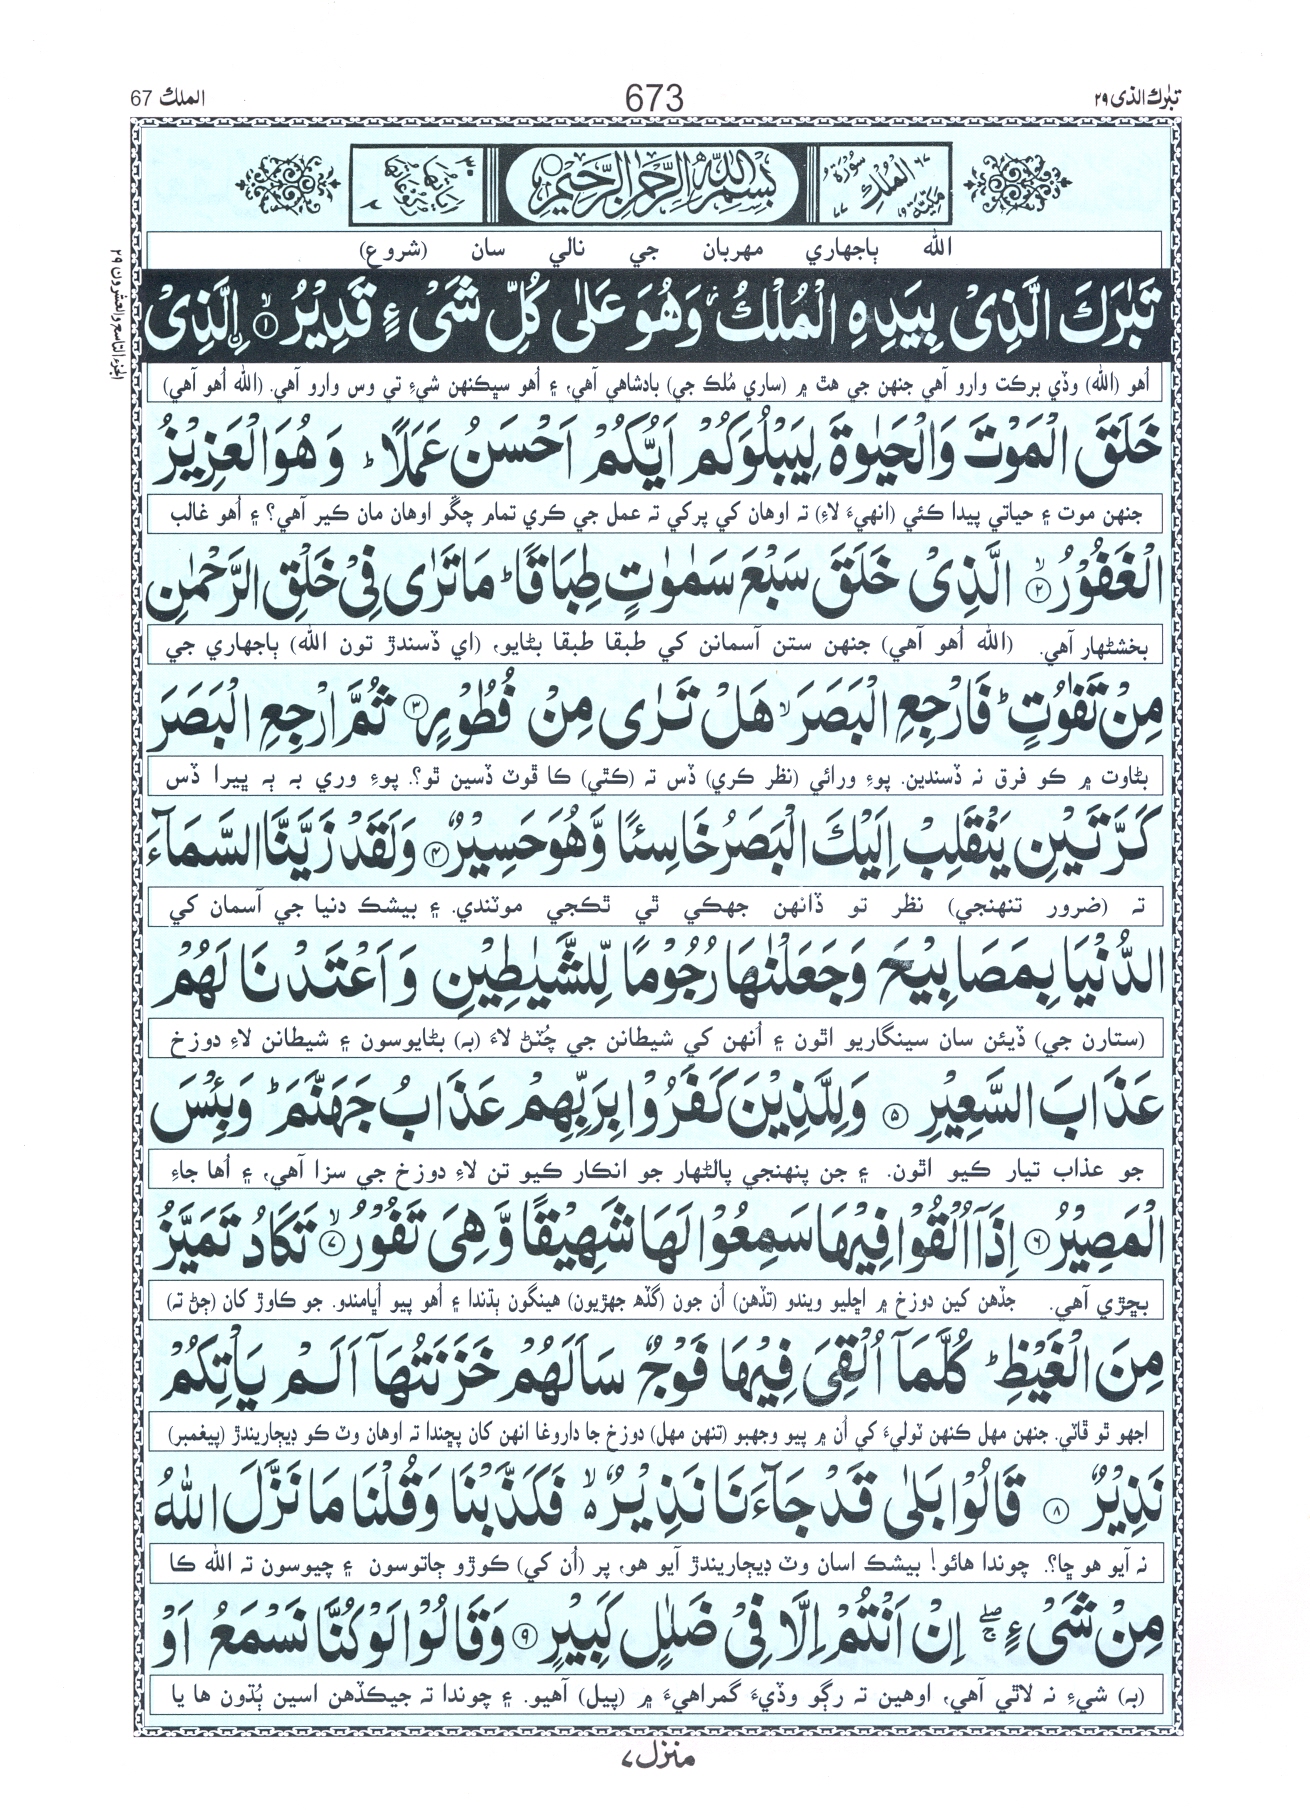 تبٰرك الذى ٢٩
673
الملك 67
سُوْرَةُ الْمُلْكِ مَكِّيَّةٌ
بِسْمِ اللّٰهِ الرَّحْمٰنِ الرَّحِيْمِ
اٰيَاتُهَا ٣٠ رُكُوْعَاتُهَا ٢
الله ٻاجهاري مهربان جي نالي سان (شروع)
الجزء التاسع والعشرون ٢٩
تَبٰرَكَ الَّذِیْ بِيَدِهِ الْمُلْكُ ؗ وَهُوَ عَلٰی كُلِّ شَیْءٍ قَدِيْرُ ۙ﴿١﴾ اۨلَّذِیْ
اُهو (الله) وڏي برڪت وارو آهي جنهن جي هٿ ۾ (ساري مُلڪ جي) بادشاهي آهي، ۽ اُهو سڀڪنهن شيءِ تي وس وارو آهي. (الله اُهو آهي)
خَلَقَ الْمَوْتَ وَالْحَيٰوةَ لِيَبْلُوَكُمْ اَيُّكُمْ اَحْسَنُ عَمَلًا ؕ وَهُوَ الْعَزِيْزُ
جنهن موت ۽ حياتي پيدا ڪئي (انهيءَ لاءِ) ته اوهان کي پرکي ته عمل جي ڪري تمام چڱو اوهان مان ڪير آهي؟ ۽ اُهو غالب
الْغَفُوْرُ ۙ﴿٢﴾ الَّذِیْ خَلَقَ سَبْعَ سَمٰوٰتٍ طِبَاقًا ؕ مَا تَرٰی فِیْ خَلْقِ الرَّحْمٰنِ
بخشڻهار آهي. (الله اُهو آهي) جنهن ستن آسمانن کي طبقا طبقا بڻايو، (اي ڏسندڙ تون الله) ٻاجهاري جي
مِنْ تَفٰوُتٍ ؕ فَارْجِعِ الْبَصَرَ ۙ هَلْ تَرٰی مِنْ فُطُوْرٍ ﴿٣﴾ ثُمَّ ارْجِعِ الْبَصَرَ
بڻاوت ۾ ڪو فرق نه ڏسندين. پوءِ ورائي (نظر ڪري) ڏس ته (ڪٿي) ڪا ڦوٽ ڏسين ٿو؟. پوءِ وري به ٻه ڀيرا ڏس
كَرَّتَيْنِ يَنْقَلِبْ اِلَيْكَ الْبَصَرُ خَاسِئًا وَّهُوَ حَسِيْرٌ ﴿٤﴾ وَلَقَدْ زَيَّنَّا السَّمَآءَ
ته (ضرور تنهنجي) نظر تو ڏانهن جهڪي ٿي ٿڪجي موٽندي. ۽ بيشڪ دنيا جي آسمان کي
الدُّنْيَا بِمَصَابِيْحَ وَجَعَلْنٰهَا رُجُوْمًا لِّلشَّيٰطِيْنِ وَاَعْتَدْنَا لَهُمْ
(ستارن جي) ڏيئن سان سينگاريو اٿون ۽ اُنهن کي شيطانن جي چُٽڻ لاءَ (به) بڻايوسون ۽ شيطانن لاءِ دوزخ
عَذَابَ السَّعِيْرِ ﴿٥﴾ وَلِلَّذِيْنَ كَفَرُوْا بِرَبِّهِمْ عَذَابُ جَهَنَّمَ ؕ وَبِئْسَ
جو عذاب تيار ڪيو اٿون. ۽ جن پنهنجي پالڻهار جو انڪار ڪيو تن لاءِ دوزخ جي سزا آهي، ۽ اُها جاءِ
الْمَصِيْرُ ﴿٦﴾ اِذَآ اُلْقُوْا فِيْهَا سَمِعُوْا لَهَا شَهِيْقًا وَّهِیَ تَفُوْرُ ۙ﴿٧﴾ تَكَادُ تَمَيَّزُ
بڇڙي آهي. جڏهن کين دوزخ ۾ اڇليو ويندو (تڏهن) اُن جون (گڏھ جهڙيون) هينگون ٻڌندا ۽ اُهو پيو اُڀامندو. جو ڪاوڙ کان (ڄڻ ته)
مِنَ الْغَيْظِ ؕ كُلَّمَآ اُلْقِیَ فِيْهَا فَوْجٌ سَاَلَهُمْ خَزَنَتُهَآ اَلَمْ يَاْتِكُمْ
اجهو ٿو ڦاٽي. جنهن مهل ڪنهن ٽوليءَ کي اُن ۾ پيو وجهبو (تنهن مهل) دوزخ جا داروغا انهن کان پڇندا ته اوهان وٽ ڪو ڊيڄاريندڙ (پيغمبر)
نَذِيْرٌ ﴿٨﴾ قَالُوْا بَلٰی قَدْ جَآءَنَا نَذِيْرٌ ۙ۬ فَكَذَّبْنَا وَقُلْنَا مَا نَزَّلَ اللّٰهُ
نه آيو هو ڇا؟. چوندا هائو! بيشڪ اسان وٽ ڊيڄاريندڙ آيو هو، پر (اُن کي) ڪوڙو ڄاتوسون ۽ چيوسون ته الله ڪا
مِنْ شَیْءٍ ۖۚ اِنْ اَنْتُمْ اِلَّا فِیْ ضَلٰلٍ كَبِيْرٍ ﴿٩﴾ وَقَالُوْا لَوْ كُنَّا نَسْمَعُ اَوْ
(به) شيءِ نه لاٿي آهي، اوهين ته رڳو وڏيءَ گمراهيءَ ۾ (پيل) آهيو. ۽ چوندا ته جيڪڏهن اسين ٻُڌون ها يا
منزل ٧